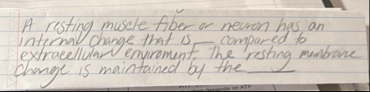 A resting muscle fiber or neuron has an
internal change that is __ compared to
extracellular enviroment. The resting membrane
change is maintained by the ____